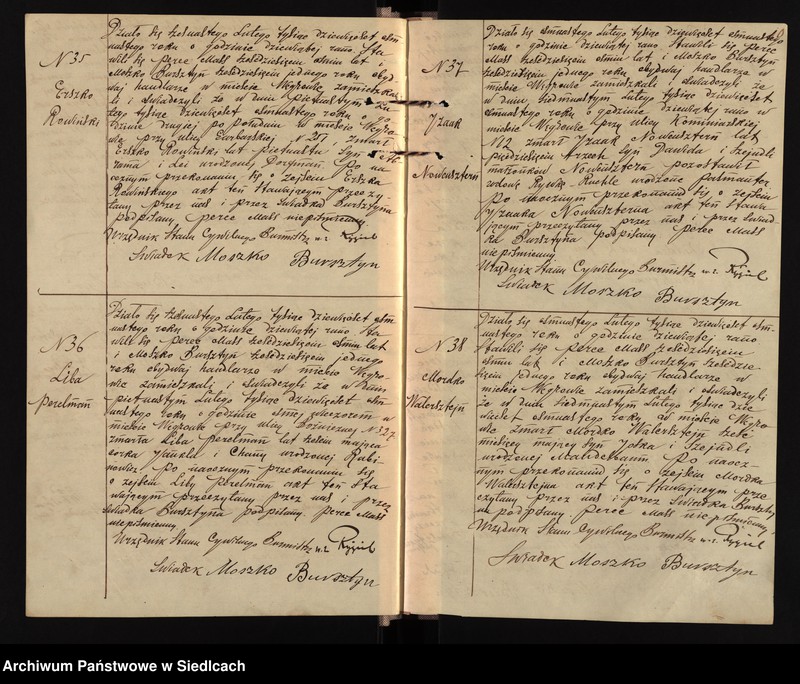 N 35
Erszko
Rowiński
Działo się szesnastego Lutego tysiąc dziewięćset ośm-
nastego roku o godzinie dziewiątej rano Sta-
wili się Perec Mass sześćdziesięciu ośmiu lat i
Moszko Bursztyn sześćdziesięciu jednego roku obyd-
waj handlarze w mieście Węgrowie zamieszkali
i świadczyli że w dniu pietnastym Lu-
tego tysiąc dziewięćset ośmnastego roku o go-
dzinie drugiej po południu w mieście Węgro-
wie przy ulicy Garbarskiej N 257 zmarł
Erszko Rowiński lat pietnastu syn
i Lei urodzonej Po na-
ocznym przekonaniu się o zejściu Erszka
Rowińskiego akt ten stawającym przeczy-
tany przez nas i przez świadka Bursztyna
podpisany Perec Mass niepiśmienny.
Urzędnik Stanu Cywilnego Burmistrz
Świadek Moszko Bursztyn
N 36
Liba
Perelman
Działo się szesnastego Lutego tysiąc dziewięćset ośm-
nastego roku o godzinie dziewiątej rano Sta-
wili się Perec Mass sześćdziesięciu ośmiu lat
i Moszko Bursztyn sześćdziesięciu jednego
roku obydwaj handlarze w mieście Węgro-
wie zamieszkali i świadczyli że w dniu
pietnastym Lutego tysiąc dziewięćset ośm-
nastego roku o godzinie ośmej wieczorem w
mieście Węgrowie przy ulicy Bożniczej N 327
zmarła Liba Perelman lat sześć mająca
córka Jankla i Chany urodzonej Rubi-
nowicz. Po naocznym przekonaniu się
o zejściu Liby Perelman akt ten sta-
wającym przeczytany przez nas i przez
świadka Bursztyna podpisany. Perec Mass
niepiśmienny.
Urzędnik Stanu Cywilnego Burmistrz
Świadek Moszko Bursztyn
N 37
Jzaak
Nowensztern
Działo się ośmnastego Lutego tysiąc dziewięćset ośmnastego
roku o godzinie dziewiątej rano Stawili się Perec
Mass sześćdziesięciu ośmiu lat i Moszko Bursztyn
sześćdziesięciu jednego roku obydwaj handlarze w
mieście Węgrowie zamieszkali i świadczyli że
w dniu siedmnastym Lutego tysiąc dziewięćset
ośmnastego roku o godzinie dziewiątej rano w
mieście Węgrowie przy ulicy Kominiarskiej
N2 zmarł Jzaak Nowensztern lat
pięćdziesięciu trzech syn Dawida i Szejndli
małżonków Nowensztern pozostawił
wdowę Rywkę-Ruchlę urodzoną
Po naocznym przekonaniu się o zejściu
Jzaaka Nowenszterna akt ten stawa-
jącym przeczytany przez nas i przez świad-
ka Bursztyna podpisany Perec Mass
niepiśmienny.
Urzędnik Stanu Cywilnego Burmistrz
Świadek Moszko Bursztyn
N 38
Mordko
Walersztejn
Działo się ośmnastego Lutego tysiąc dziewięćset ośm-
nastego roku o godzinie dziewiątej rano
Stawili się Perec Mass sześćdziesięciu
ośmiu lat i Moszko Bursztyn sześćdzie-
sięciu jednego roku obydwaj handlarze w
mieście Węgrowie zamieszkali i świadczyli
że w dniu siedmnastym Lutego tysiąc dzie-
więćset ośmnastego roku w mieście Węgro-
wie zmarł Mordko Walersztejn sześć
miesięcy mający syn Joska i Szejndli
urodzonej Po naocz-
nym przekonaniu się o zejściu Mordka
Walersztejna akt ten stawającym prze-
czytany przez nas i przez świadka Burszty-
na podpisany. Perec Mass niepiśmienny.
Urzędnik Stanu Cywilnego Burmistrz
Świadek Moszko Bursztyn
Archiwum Państwowe w Siedlcach